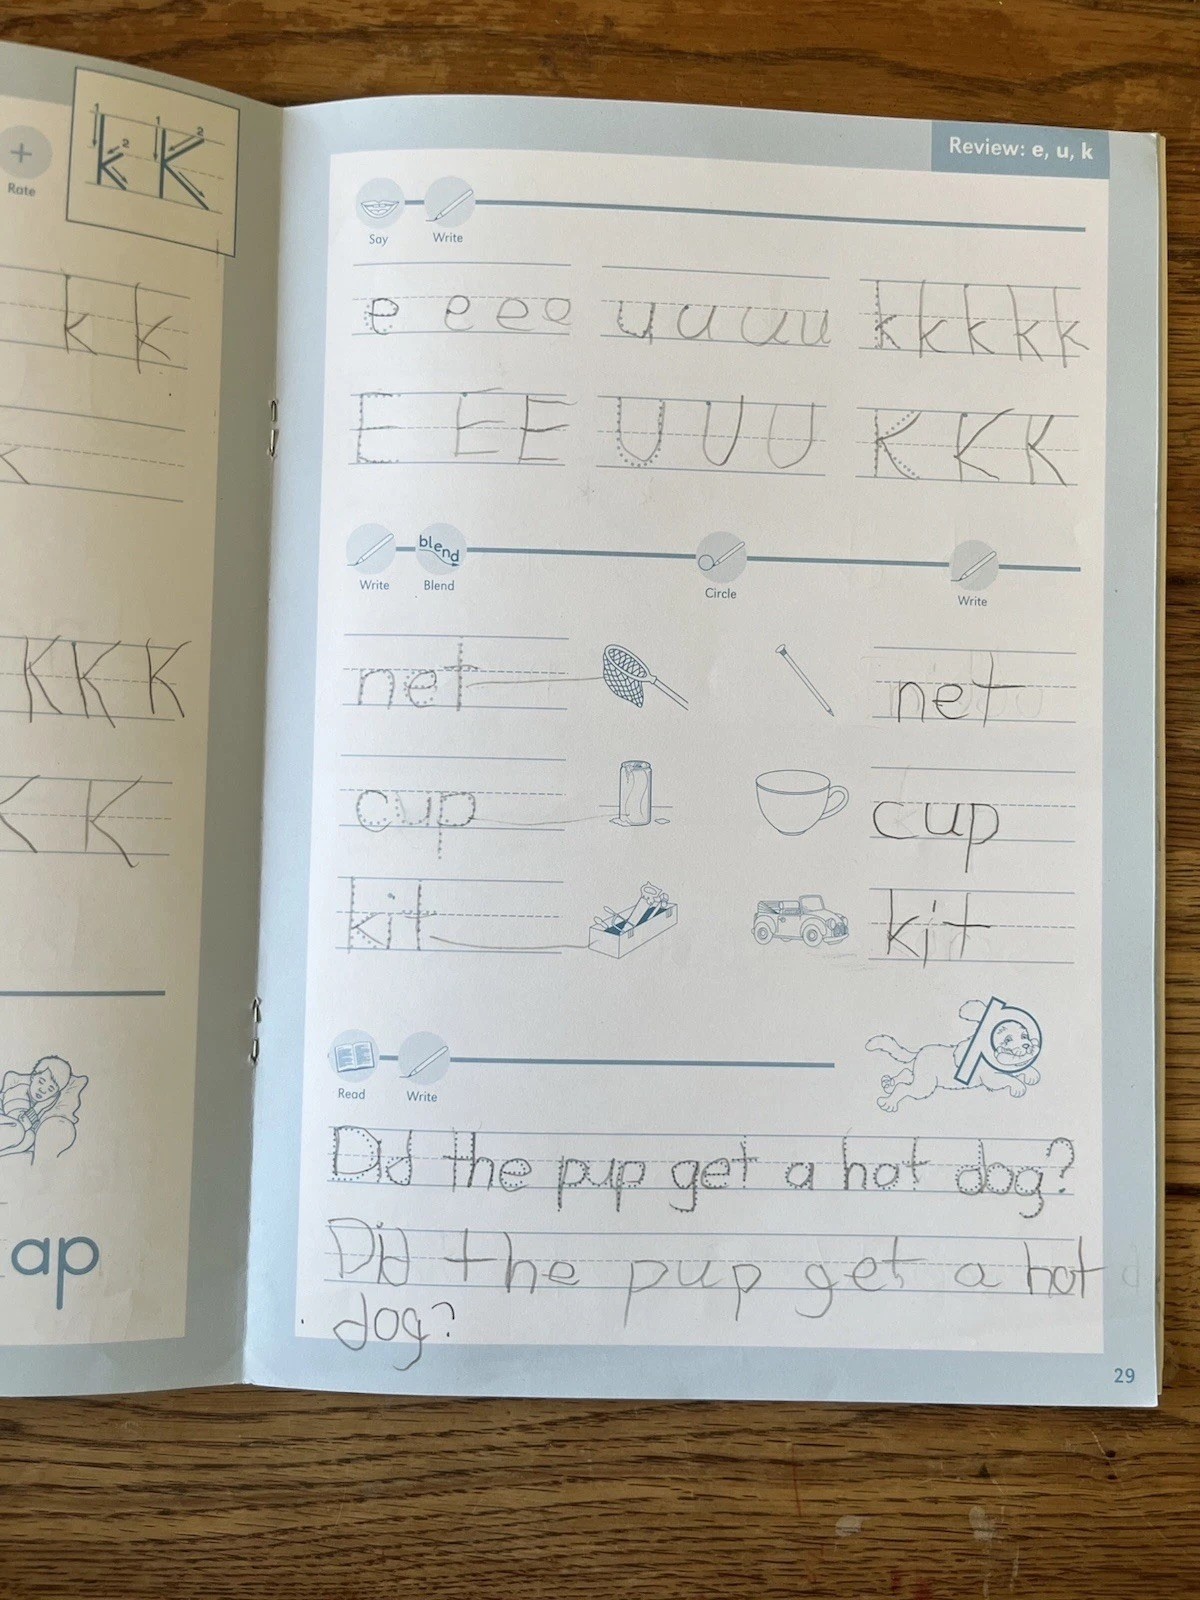 1 2 1 2
k K
+
Rate
k k
k
K K K
K K
ap
Review: e, u, k
Say Write
e e e e u u u u k k k k k
E E E U U U K K K
Write blend Blend Circle Write
net net
cup cup
kit kit
p
Read Write
Did the pup get a hot dog?
Did the pup get a hot
dog?
29